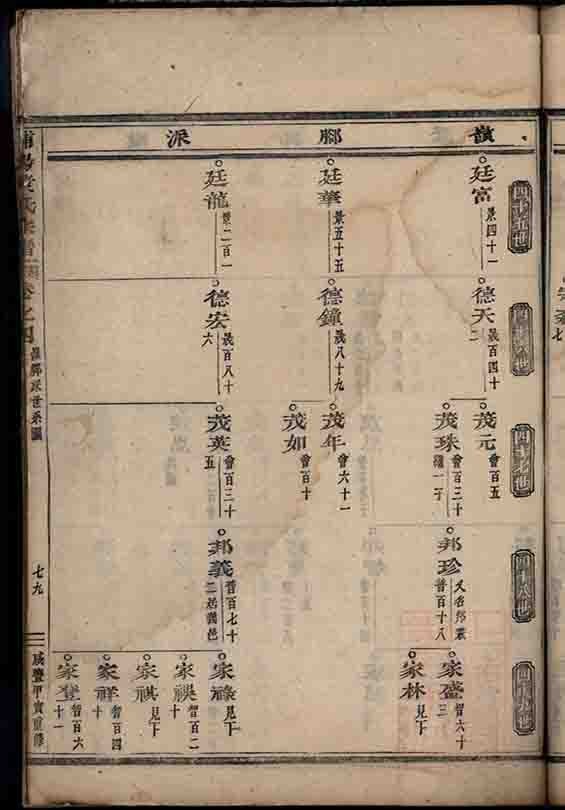 嶺腳派
四十五世
廷富 景四十一
廷華 景五十五
廷龍 景二百一
四十六世
德天 晟百四十二
德鐘 晟八十九
德宏 晟百八十六
四十七世
茂元 會百五
茂珠 會百三十 繼一子
茂年 會六十一
茂如 會百十
茂英 會百三十五
四十八世
邦珍 又名邦
晉百十八
邦義 晉百七十二 居蘭邑
四十九世
家盛 智六十三
家林 見下
家祿 見下
家祺 智百二十
家祺 見下
家祥 智百四十
家登 智百六十一
氏宗譜 卷之四
嶺腳派世系圖
七九
咸豐甲寅重修